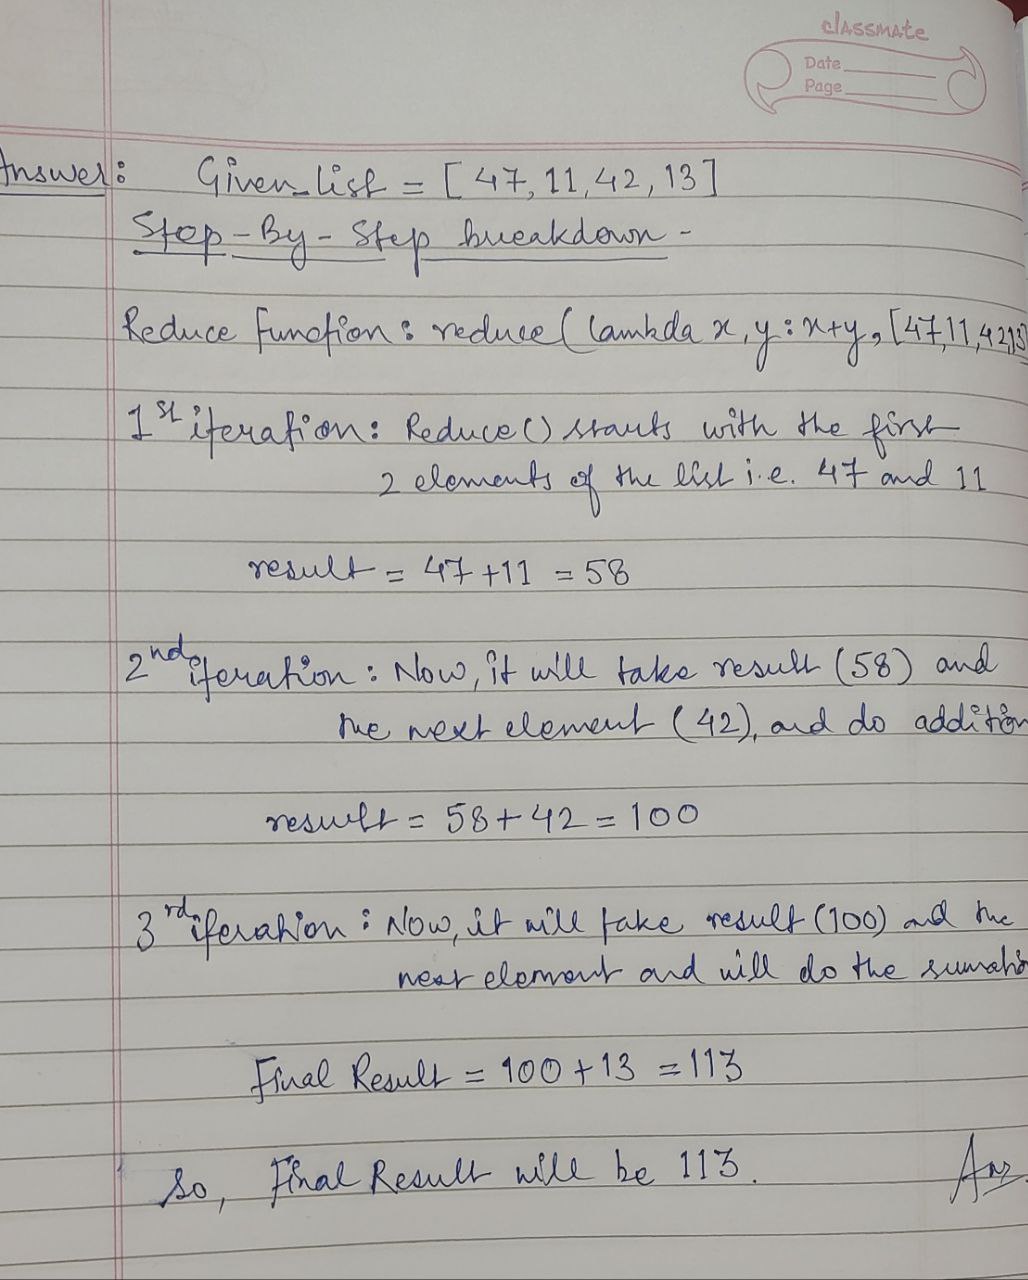 classmate
Date
Page
Answer: Given_list = [47, 11, 42, 13]
Step-By-Step breakdown -
Reduce Function: reduce(lambda x, y: x+y, [47,11,42,13]
1st iteration: Reduce() starts with the first
2 elements of the list i.e. 47 and 11
result = 47+11 = 58
2nd iteration: Now, it will take result (58) and
the next element (42), and do addition
result = 58+42 = 100
3rd iteration: Now, it will take result (100) and the
next element and will do the
Final Result = 100+13 = 113
So, Final Result will be 113.
Ans